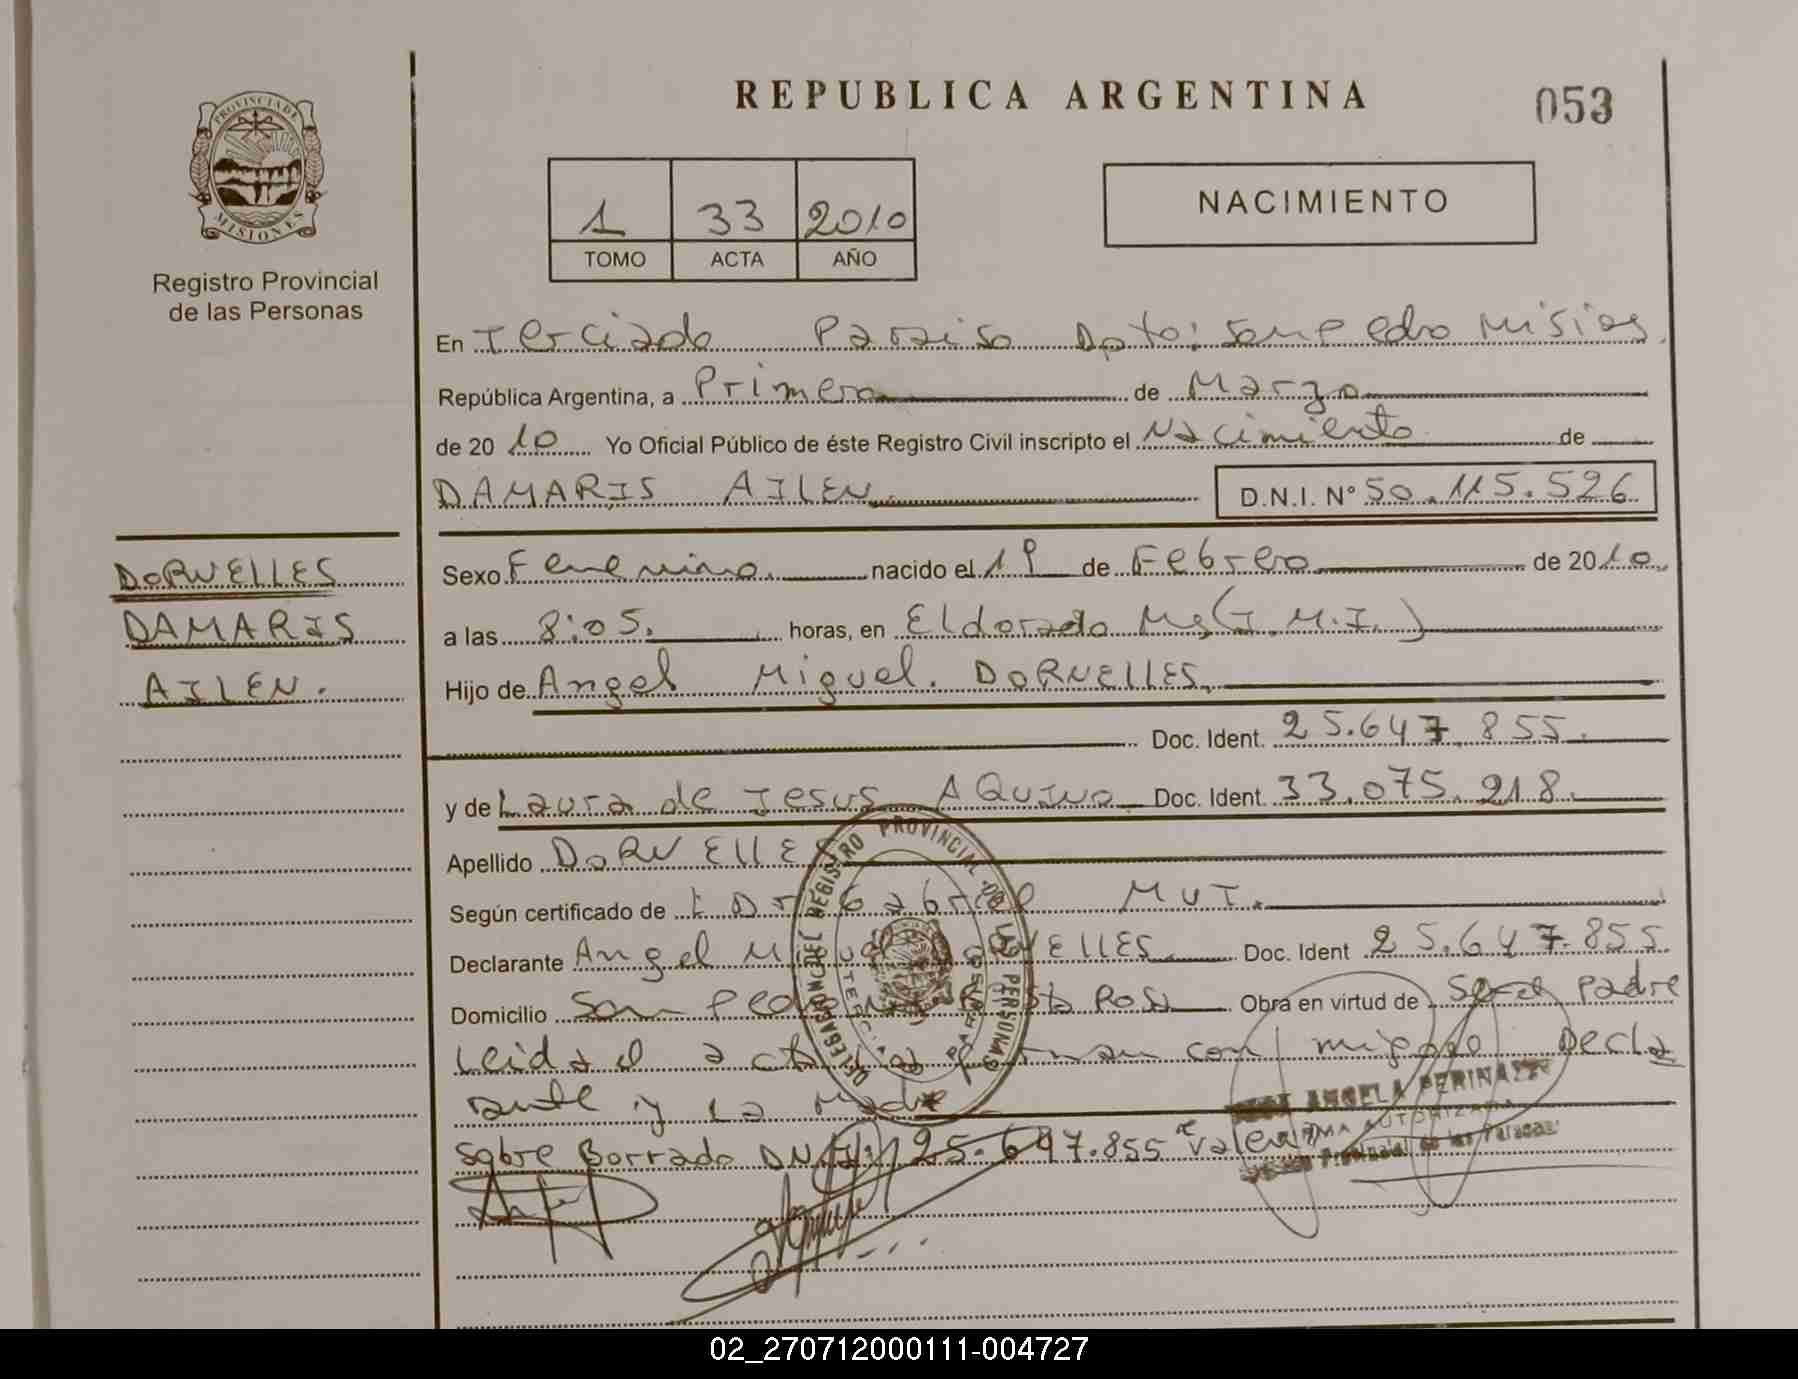 REPUBLICA ARGENTINA
053
PROVINCIA DE
MISIONES
Registro Provincial
de las Personas
1 33 2010
TOMO ACTA AÑO
NACIMIENTO
En Terciado Paraiso Dpto: San Pedro Misiones
República Argentina, a Primero de Marzo
de 2010 Yo Oficial Público de éste Registro Civil inscripto el Nacimiento de
DAMARIS AILEN D.N.I. Nº 50.115.526
DORNELLES
DAMARIS
AILEN.
Sexo Femenino. nacido el 19 de Febrero de 2010
a las 8:05. horas, en Eldorado
Hijo de Angel Miguel. DORNELLES.
Doc. Ident. 25.647.855.
y de Laura de Jesus AQUINO Doc. Ident. 33.075.218.
Apellido DORNELLES
Según certificado de Dr Gabriel
Declarante Angel Miguel DORNELLES Doc. Ident 25.647.855.
Domicilio San Pedro Rosa Obra en virtud de Ser el Padre
Leida el acta firman conmigo Decla
rante y La Madre
Sobre Borrado DNI 25.647.855 Vale
DELEGACION DEL REGISTRO PROVINCIAL DE LAS PERSONAS
ANGELA PERINAZZO
FIRMA AUTORIZADA
Provincial de las Personas
02_270712000111-004727